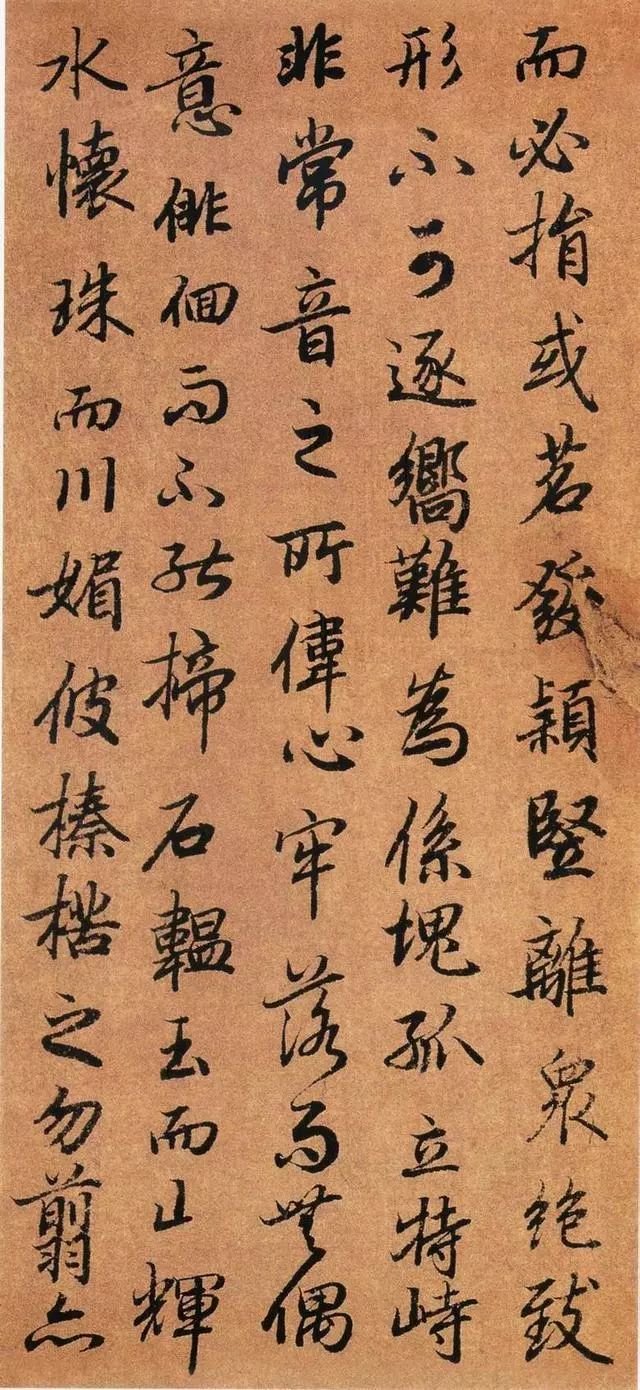 而必揹或苕發穎竪離衆絶致
形不可逐嚮難為係塊孤立特峙
非常音之所偉心牢落而無偶
意徘徊而不能揥石韞玉而山輝
水懷珠而川媚彼榛楛之勿翦亦